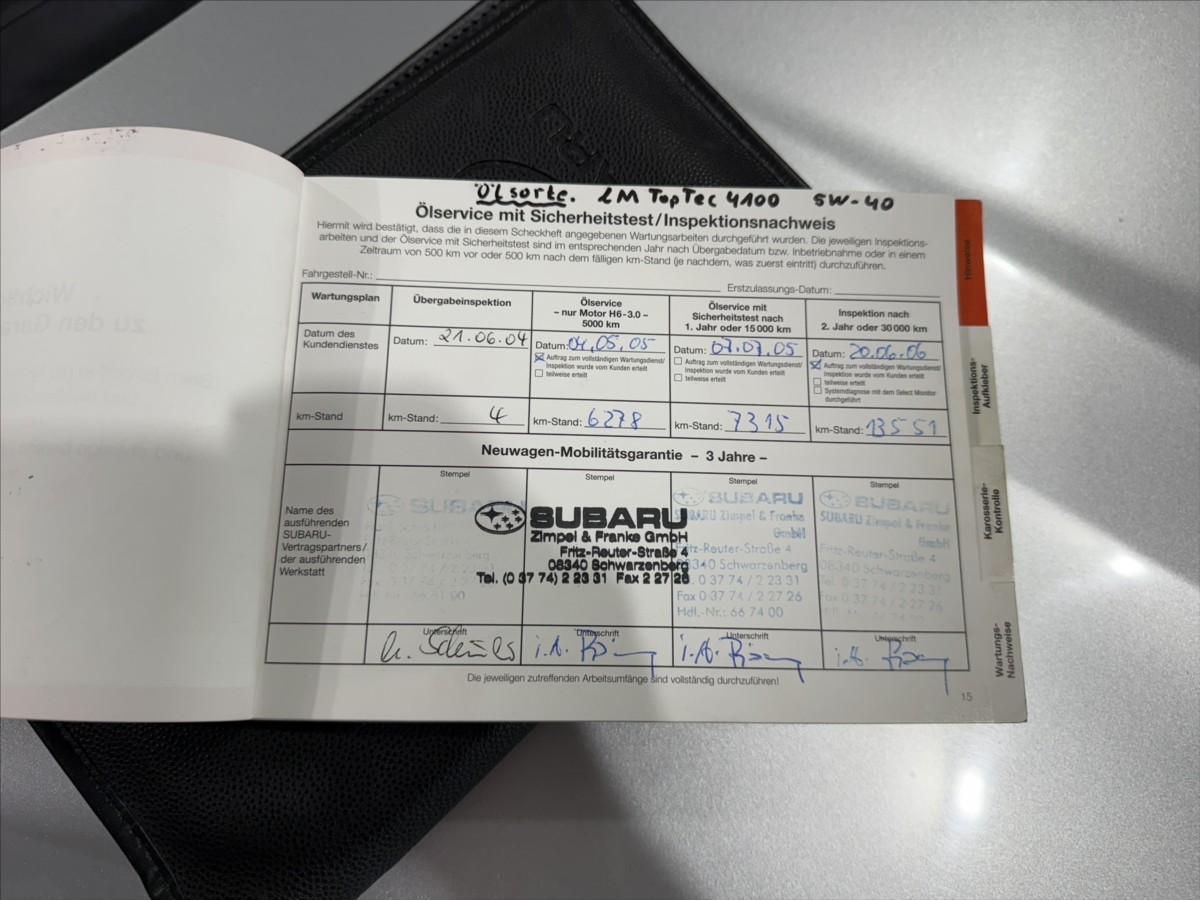 Ölsorte. LM TopTec 4100 5W-40
Ölservice mit Sicherheitstest/Inspektionsnachweis
Hiermit wird bestätigt, dass die in diesem Scheckheft angegebenen Wartungsarbeiten durchgeführt wurden. Die jeweiligen Inspektions-
arbeiten und der Ölservice mit Sicherheitstest sind im entsprechenden Jahr nach Übergabedatum bzw. Inbetriebnahme oder in einem
Zeitraum von 500 km vor oder 500 km nach dem fälligen km-Stand (je nachdem, was zuerst eintritt) durchzuführen.
Fahrgestell-Nr.: Erstzulassungs-Datum:
Wartungsplan
Übergabeinspektion
Ölservice
– nur Motor H6-3.0 –
5000 km
Ölservice mit
Sicherheitstest nach
1. Jahr oder 15 000 km
Inspektion nach
2. Jahr oder 30 000 km
Datum des
Kundendienstes
Datum: 21.06.04
Datum: 04.05.05
Auftrag zum vollständigen Wartungsdienst/
Inspektion wurde vom Kunden erteilt
teilweise erteilt
Datum: 07.07.05
Auftrag zum vollständigen Wartungsdienst/
Inspektion wurde vom Kunden erteilt
teilweise erteilt
Datum: 20.06.06
Auftrag zum vollständigen Wartungsdienst/
Inspektion wurde vom Kunden erteilt
teilweise erteilt
Systemdiagnose mit dem Select Monitor
durchgeführt
km-Stand
km-Stand: 4
km-Stand: 6278
km-Stand: 7315
km-Stand: 13551
Neuwagen-Mobilitätsgarantie – 3 Jahre –
Name des
ausführenden
SUBARU-
Vertragspartners/
der ausführenden
Werkstatt
Stempel
SUBARU
Stempel
SUBARU
Zimpel & Franke GmbH
Fritz-Reuter-Straße 4
08340 Schwarzenberg
Tel. (0 37 74) 2 23 31 Fax 2 27 26
Stempel
SUBARU
SUBARU Zimpel & Franke
GmbH
Fritz-Reuter-Straße 4
08340 Schwarzenberg
Tel. 0 37 74 / 2 23 31
Fax 0 37 74 / 2 27 26
Hdl.-Nr.: 66 74 00
Stempel
SUBARU
SUBARU Zimpel & Franke
GmbH
Fritz-Reuter-Straße 4
08340 Schwarzenberg
Tel. 0 37 74 / 2 23 31
Fax 0 37 74 / 2 27 26
Unterschrift
Unterschrift
i.A.
Unterschrift
i.A.
Unterschrift
i.A.
Die jeweiligen zutreffenden Arbeitsumfänge sind vollständig durchzuführen!
15
Hinweise
Inspektions-
Aufkleber
Karosserie-
Kontrolle
Wartungs-
Nachweise